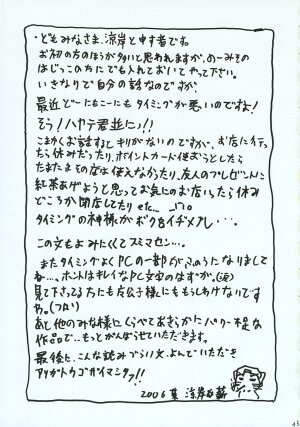 ・どもみなさま、涼岸と申す者です。
お初の方のほうが多いと思われますが、のーみその
はじっこの方にでも入れておいてやって下さい。
いきなりで自分の話なのですが、
最近どーにもこーにもタイミングが悪いのでね!
そう!ハヤテ君並にっ!!
こまかくお話すると キリがないのですが、お店に行っ
たら休みだったり、ポイントカード使おうとしたら
たまたまその店は使えなかったり、友人のプレゼントに
紅茶あげようと思ってお気にのお店いったら休み
どころか閉店してたり etc…
タイミングの神様がボクをイヂメル…・・
この文もよみにくくてスミマセン…。
またタイミングよくPCの一部がふりになりまして
ね…。ホントはキレイなPC文字のはずが。(泣)
見て下さってる方にも友公子様にももうしわけないです
わ。(フロイ)
あと他のみな様にくらべてあきらかにパワー不足な
作品で…もっとがんばらせていただきます。
最後に、こんな読みづらい文、よんでいただき
アリガトウゴザイマシタ!!
2006 夏 涼岸